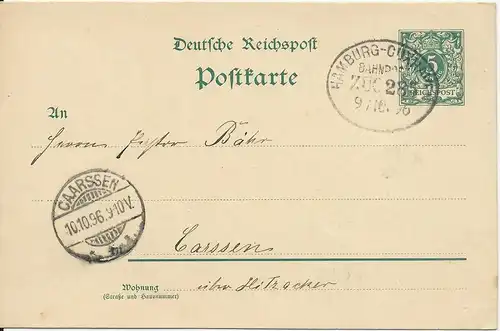 Deutsche Reichspost
Postkarte
HAMBURG-CUXHAVEN
BAHNPOST
ZUG 285
9/10. 96
5
REICHSPOST
An
Herrn Pastor Bähr
CAARSSEN
10.10.96.9-10V.
Carssen
Wohnung
(Straße und Hausnummer)
über Hitzacker